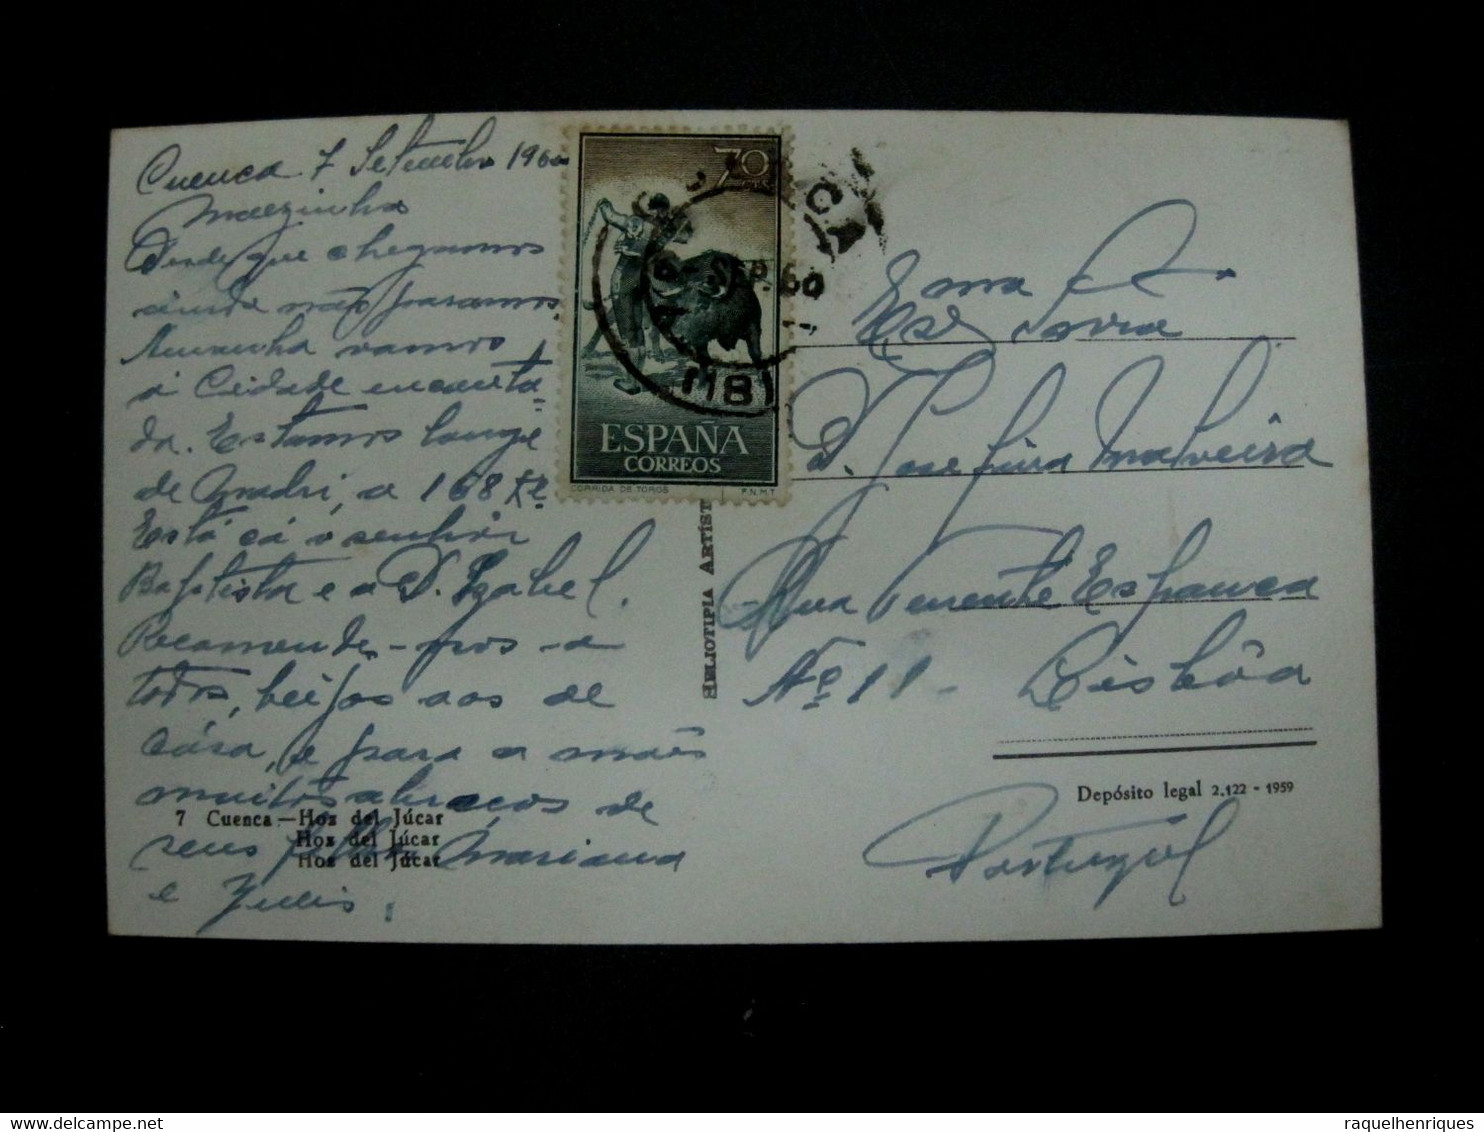 Cuenca 7 Setembro 1960
Mãezinha
Desde que chegamos
ainda não paramos.
Amanha vamos
á Cidade encanta-
da. Estamos longe
de Madri, a 168 K.
Está cá o senhor
Baptista e a D. Izabel.
Recomende-nos a
todos, beijos aos de
cása, e para a mãe
muitos abraços de
seus filhos Mariana
e Julio.
7 Cuenca — Hoz del Júcar
Hoz del Júcar
Hoz del Júcar
70
SEP. 60
(18)
ESPAÑA
CORREOS
CORRIDA DE TOROS F.N.M.T
HELIOTIPIA ARTÍST
Exma
Snra
D. Josefina Malveira
Rua Tenente Espanca
Nº 11 - Lisbôa
Depósito legal 2.122 - 1959
Portugal
raquelhenriques